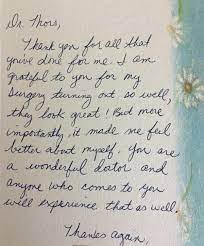 Dr. Thors,
Thank you for all that
you've done for me. I am
grateful to you for my
surgery turning out so well,
they look great! But more
importantly, it made me feel
better about myself. You are
a wonderful doctor and
anyone who comes to you
will experience that as well.
Thanks again,